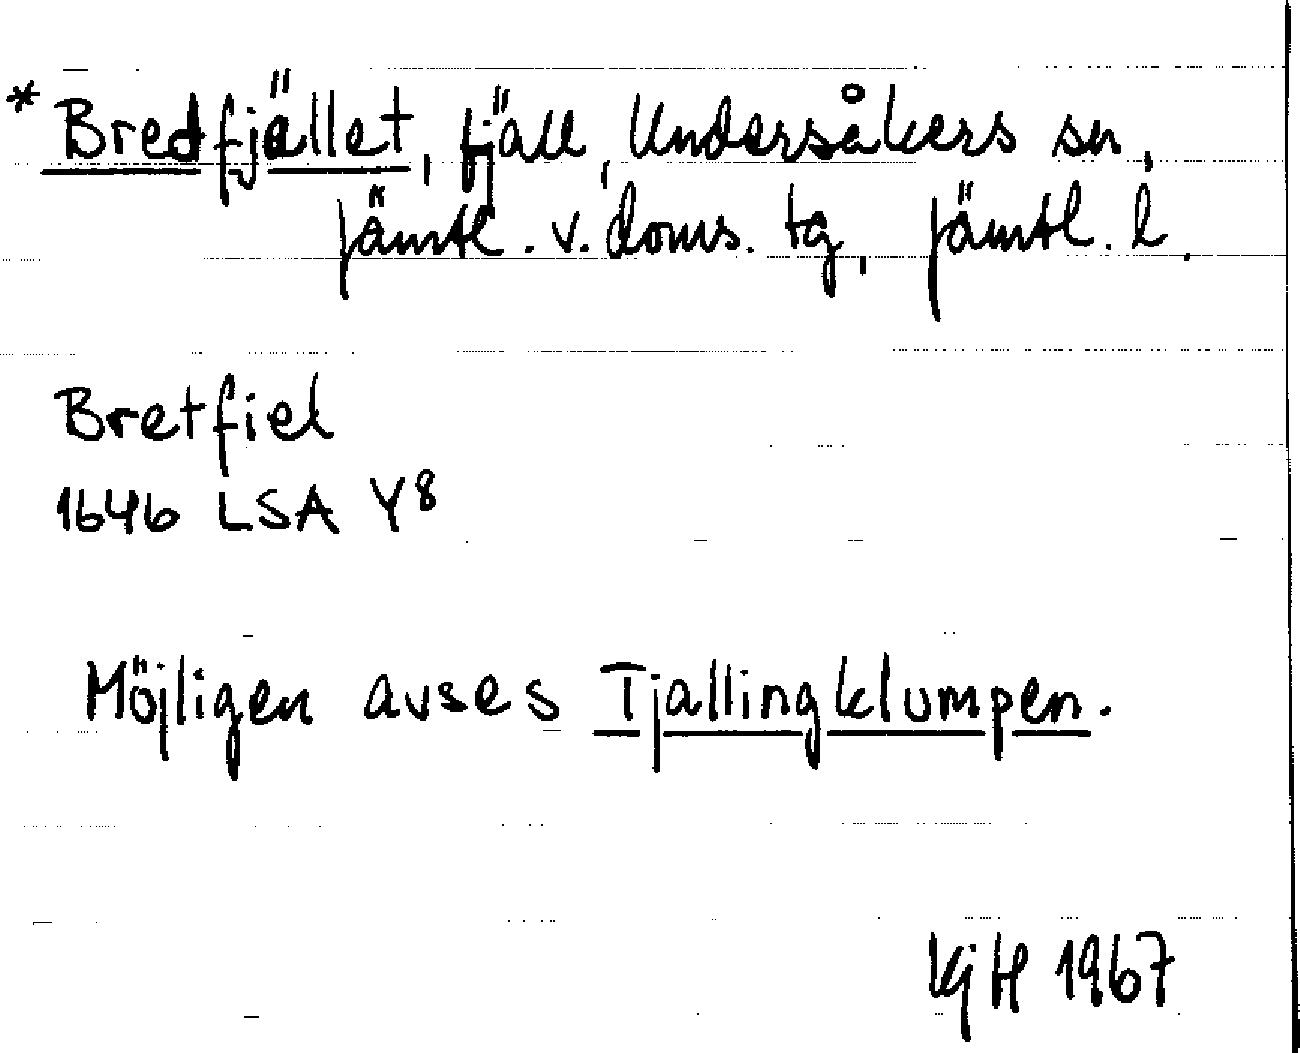 * Bredfjället, fjäll, Undersåkers sn,
Jämtl. v. doms. tg, Jämtl. l.
Bretfiel
1646 LSA Y8
Möjligen avses Tjallingklumpen.
KjH 1967